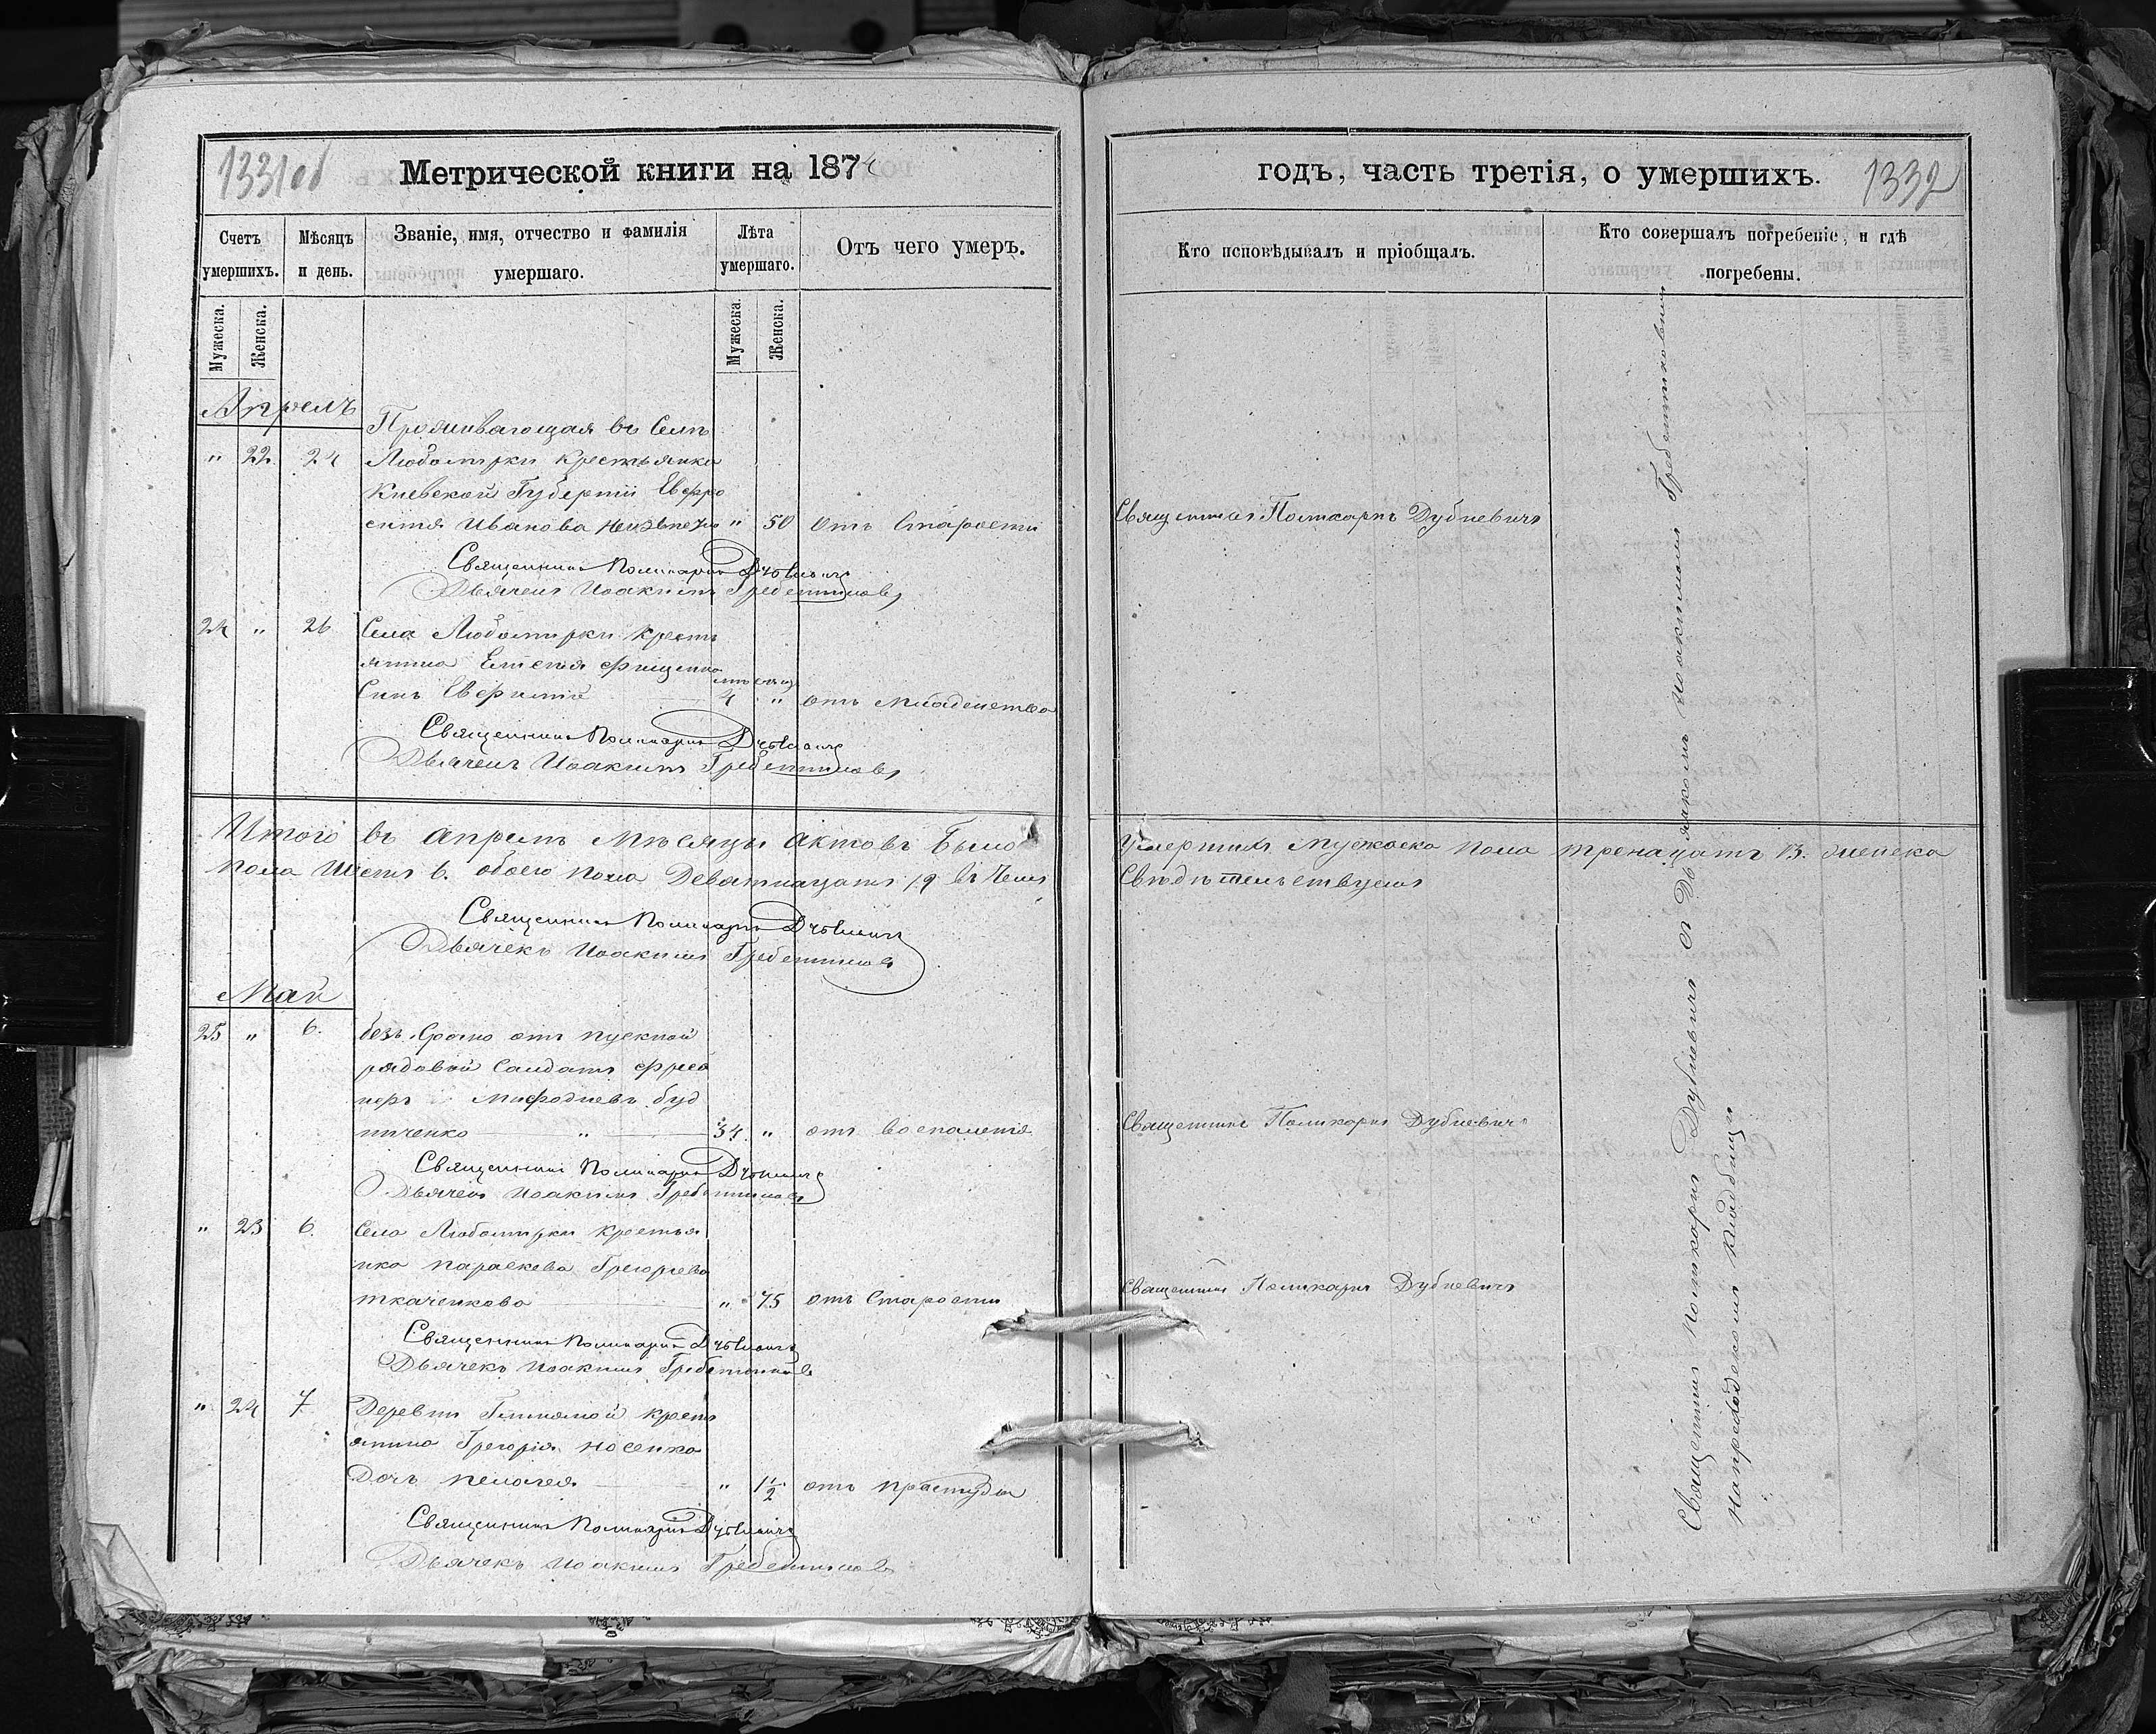 1331об
Метрической книги на 1874
Счетъ умершихъ.
Мужеска.
Женска.
Мѣсяцъ и день.
Званіе, имя, отчество и фамилія умершаго.
Лѣта умершаго.
Мужеска.
Женска.
Отъ чего умеръ.
Апрель
Проживающая въ Селѣ
" 22 24 Любомирки крестьянка
Киевской Губерніи Евфро
синія Иванова " 50 отъ Старости
Священникъ Поликарпъ Дубневичъ
Дьячекъ Иоакимъ Гребенниковъ
24 " 26 Села Любомирки кресть
янина Евгенія Фищенка
мѣсяцъ
Сынъ Евфимій 4 " отъ младенства
Священникъ Поликарпъ Дубневичъ
Дьячекъ Иоакимъ Гребенниковъ
Итого въ апрелѣ мѣсяцы актовъ было
пола Шесть 6. обоего пола Девятнацать 19 въ чемъ
Священникъ Поликарпъ Дубневичъ
Дьячекъ Иоакимъ Гребенниковъ
Май
25 " 6. безъ Срочно отпускной
рядовой Салдатъ
Мифодиевъ буд
ниченко " 34 " отъ воспаленія
Священникъ Поликарпъ Дубневичъ
Дьячекъ Иоакимъ Гребенниковъ
" 23 6. Села Любомирки крестья
нка Параскева Грегориева
ткаченкова " 75 отъ Старости
Священникъ Поликарпъ Дубневичъ
Дьячекъ Иоакимъ Гребенниковъ
" 24 7. Деревни Глиняной кресть
янина Грегорія Носенка
Дочь Пелагея " 1 1/2 отъ простуды
Священникъ Поликарпъ Дубневичъ
Дьячекъ Иоакимъ Гребенниковъ
годъ, часть третія, о умершихъ.
1332
Кто исповѣдывалъ и пріобщалъ.
Кто совершалъ погребеніе, и гдѣ погребены.
Священникъ Поликарпъ Дубневичъ
умершихъ мужеска пола тренацать 13. женска
Свидѣтельствуемъ
Священникъ Поликарпъ Дубневичъ
Священникъ Поликарпъ Дубневичъ
Священникъ Поликарпъ Дубневичъ съ Дьячкомъ Иоакимомъ Гребенниковымъ
на приходскомъ кладбищи